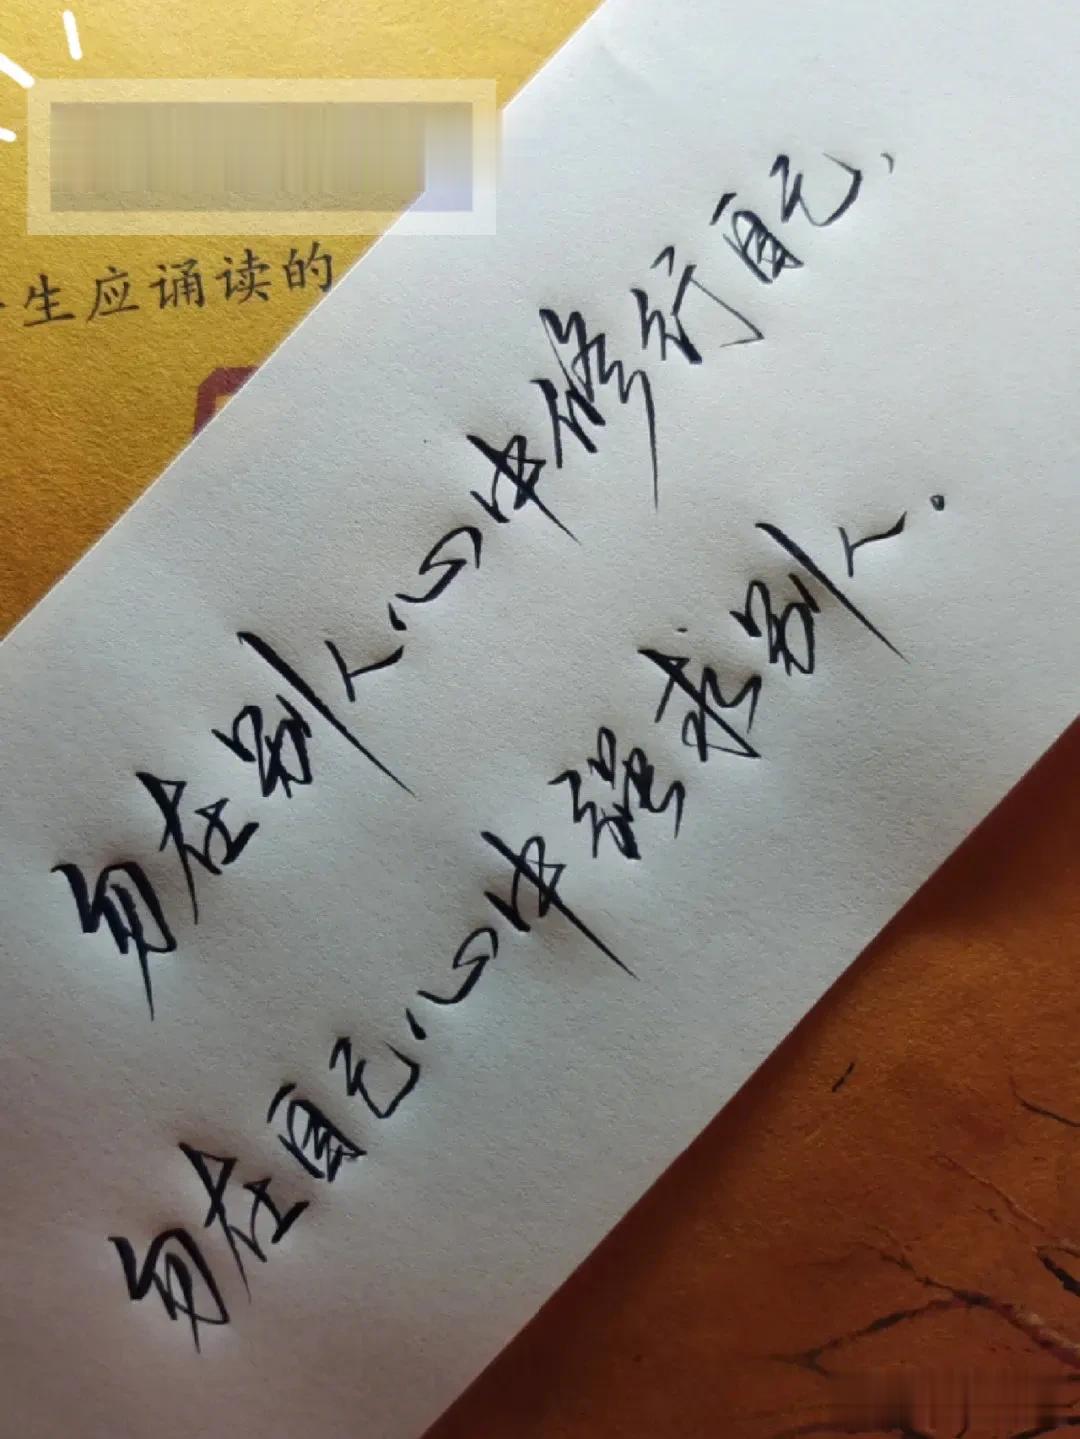 生应诵读的
勿在别人心中修行自己，
勿在自己心中强求别人.